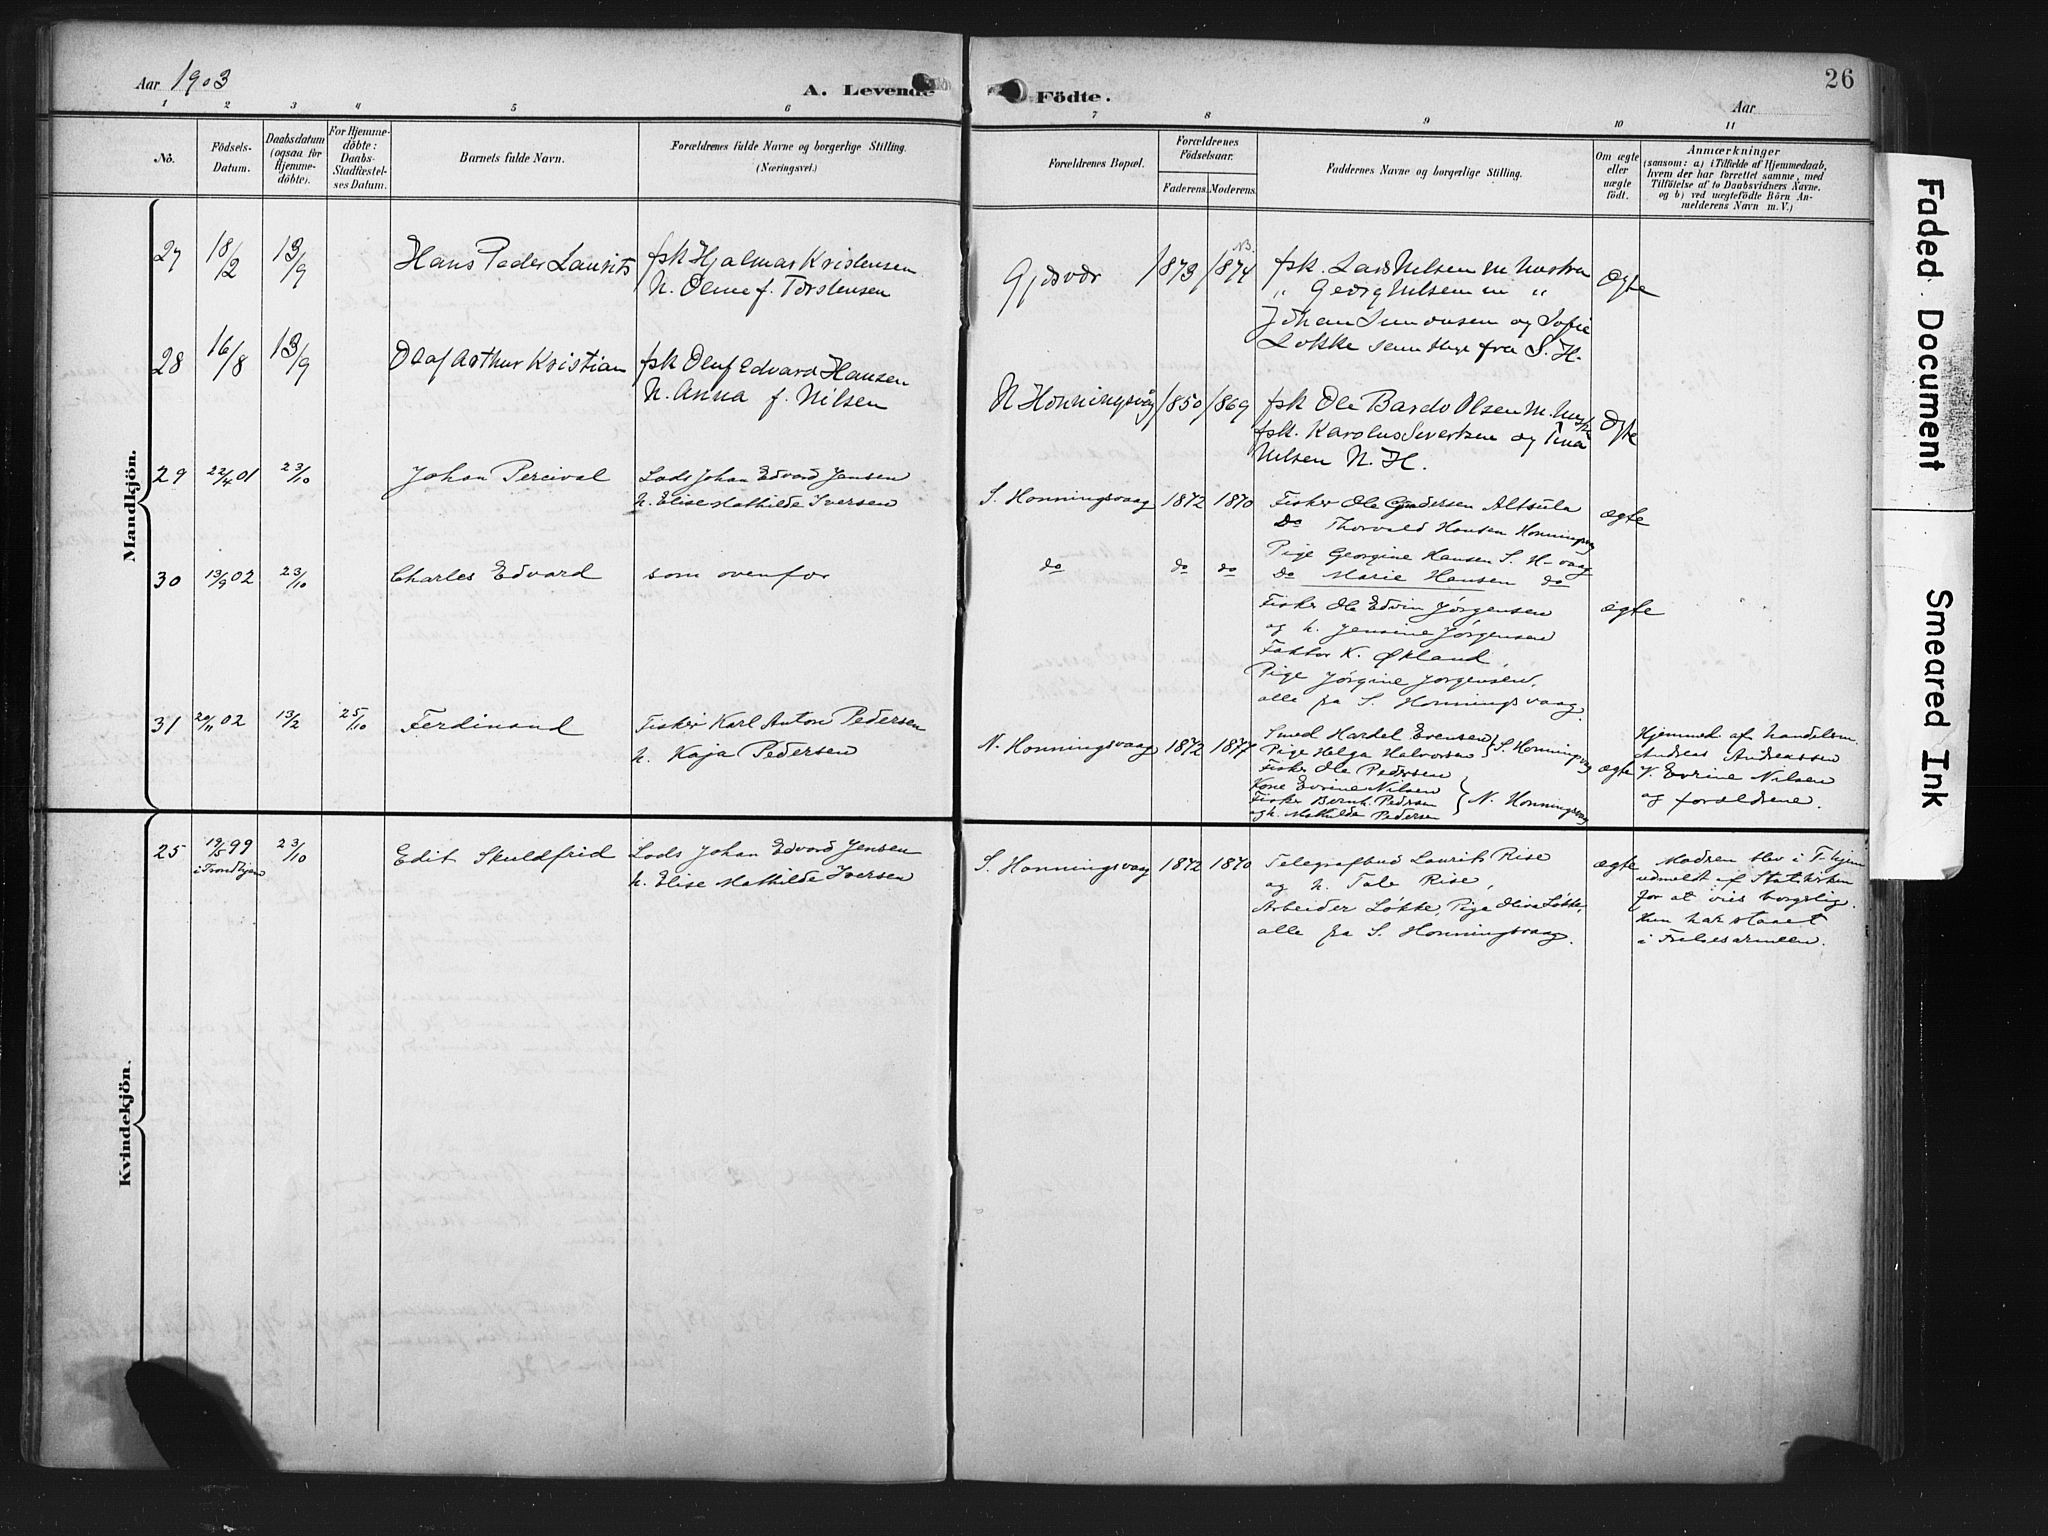 Aar 1903
A. Levende
Födte.
Aar
26
1 2 3 4 5 6 7 8 9 10 11
No.
Födsels-
Datum.
Daabsdatum
(ogsaa for
Hjemme-
döbte).
For Hjemme-
döbte:
Daabs-
Stadfæstel-
ses Datum.
Barnets fulde Navn.
Forældrenes fulde Navne og borgerlige Stilling.
(Næringsvei.)
Forældrenes Bopæl.
Forældrenes
Födselsaar.
Faderens. Moderens.
Faddernes Navne og borgerlige Stilling.
Om ægte
eller
uægte
födt.
Anmærkninger
(saasom: a) i Tilfælde af Hjemmedaab,
hvem der har forrettet samme, med
Tilföielse af to Daabsvidners Navne.
og b) ved uægtefödte Börn An-
melderens Navn m. V.)
Mandkjön.
27 18/2 13/9 Hans Peder Laurits fsk Hjalmar Kristensen
h. f. Torstensen
Gjesvær 1873 1874 fsk. Lars Nilsen m hustru ægte
" Georg Nilsen m "
Johan Simonsen og Sofie
Løkke fra S. H.
28 16/8 13/9 Olaf Arthur Kristian fsk Oluf Edvard Hansen
h. Anna f. Nilsen
N Honningsvåg 1850 1869 fsk Ole Bardo Olsen m. ægte
fsk. Karolus Sivertsen og Tina
Nilsen N. H.
29 22/4 01 23/10 Johan Percival Lods Johan Edvard Jensen
h. Elise Mathilde Iversen
S. Honningsvaag 1872 1870 Fisker Ole Altsula ægte
Do Thorvald Hansen Honningsvag
Pige Georgine Hansen S. H-vaag
Do Marie Hansen do
30 13/9 02 23/10 Charles Edvard som ovenfor
do do do
Fisker Ole Edvin Jørgensen ægte
og h. Jensine Jørgensen
Faktor K. Økland,
Pige Jørgine Jørgensen,
alle fra S. Honningsvaag.
31 20/11 02 13/2 25/10 Ferdinand Fisker Karl Anton Pedersen
h. Kaja Pedersen
N. Honningsvaag 1872 1877 Smed Hartel Evensen } S. Honningsvag
Pige Helga Halvorsen
Fisker Ole Pedersen ægte
Kone Evrine Nilsen } N. Honningsvag
Fisker Bernh. Pedersen
og h. Mathilde Pedersen
Hjemmed af handelsm.
Andreas Andreassen
V. Evrine Nilsen
og forældrene.
Kvindekjön.
25 19/5 99 23/10 Edit Skuldfrid Lods Johan Edvard Jensen
i Trondhjem h. Elise Mathilde Iversen
S. Honningsvaag 1872 1870 Telegrafbud Laurits Rise ægte
og h. Tale Rise,
Arbeider Løkke, Pige Oliva Løkke,
alle fra S. Honningsvaag.
Modren blev i T.hjem
udmeldt af Statskirken
for at vies borgelig.
Hun har staaet
i Frelsesarmeen.
Faded Document
Smeared Ink